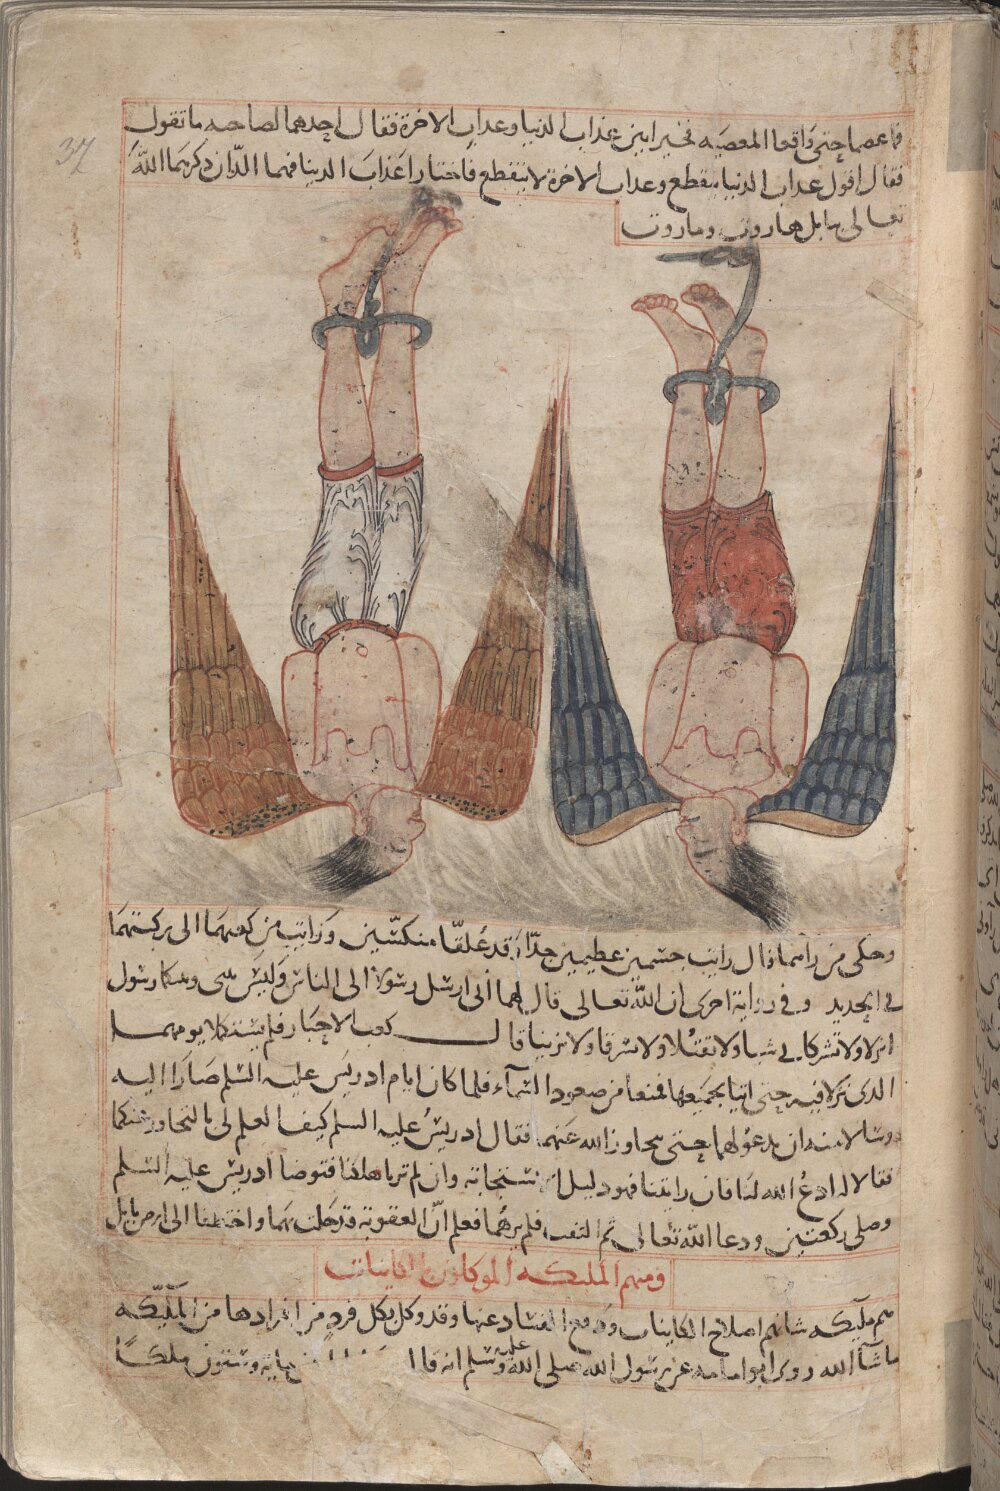 37
فاعصما حتى واقعا المعصيه فخيرا بين عذاب الدنيا وعداب الاخرة فقال احدهما لصاحبه ما تقول
فقال اقول عداب الدنيا ينقطع وعداب الاخرة لا ينقطع فاختارا عذاب الدنيا فهما اللذان ذكرهما الله
تعالى ببابل هاروت وماروت
وحكى من راهما قال رايت جسمين عظيمين جدا قد علقا منكسين وراتب من كعبهما الى ركبتهما
في الحديد وفي رواية اخرى ان الله تعالى قال لهما انى ارسل رسولا الى الناس وليس بينى وبينكما رسول
انزلا ولا تشركا بي شيا ولا تقتلا ولا تسرقا ولا تزنيا قال كعب الاحبار فلم يستكملا يومهما
الدى نزلا فيه حتى اتيا بجميعها فمنعا من صعود السماء فلما كان ايام ادريس عليه السلم صارا اليه
وسالا منه ان يدعو لهما حتى يتجاوز الله عنهما فقال ادريس عليه السلم كيف العلم لى بالتجاوز عنكما
فقالا له ادع الله لنا فان رايتنا فهو دليل الاستجابة وان لم ترنا هلكنا فتوضا ادريس عليه السلم
وصلى ركعتين ودعا الله تعالى ثم التفت فلم يرهما فعلم ان العقوبة قد حلت بهما واختطفا الى ارض بابل
ومنهم الملىكه الموكلون بالكاينات
هم ملايكه شانهم اصلاح الكاينات ودفع الفساد عنها وقد وكل بكل فرد من افرادها من الملىكه
ما شآ الله روى ابو امامه عن رسول الله صلى الله عليه وسلم انه قال مايه وستون ملكا